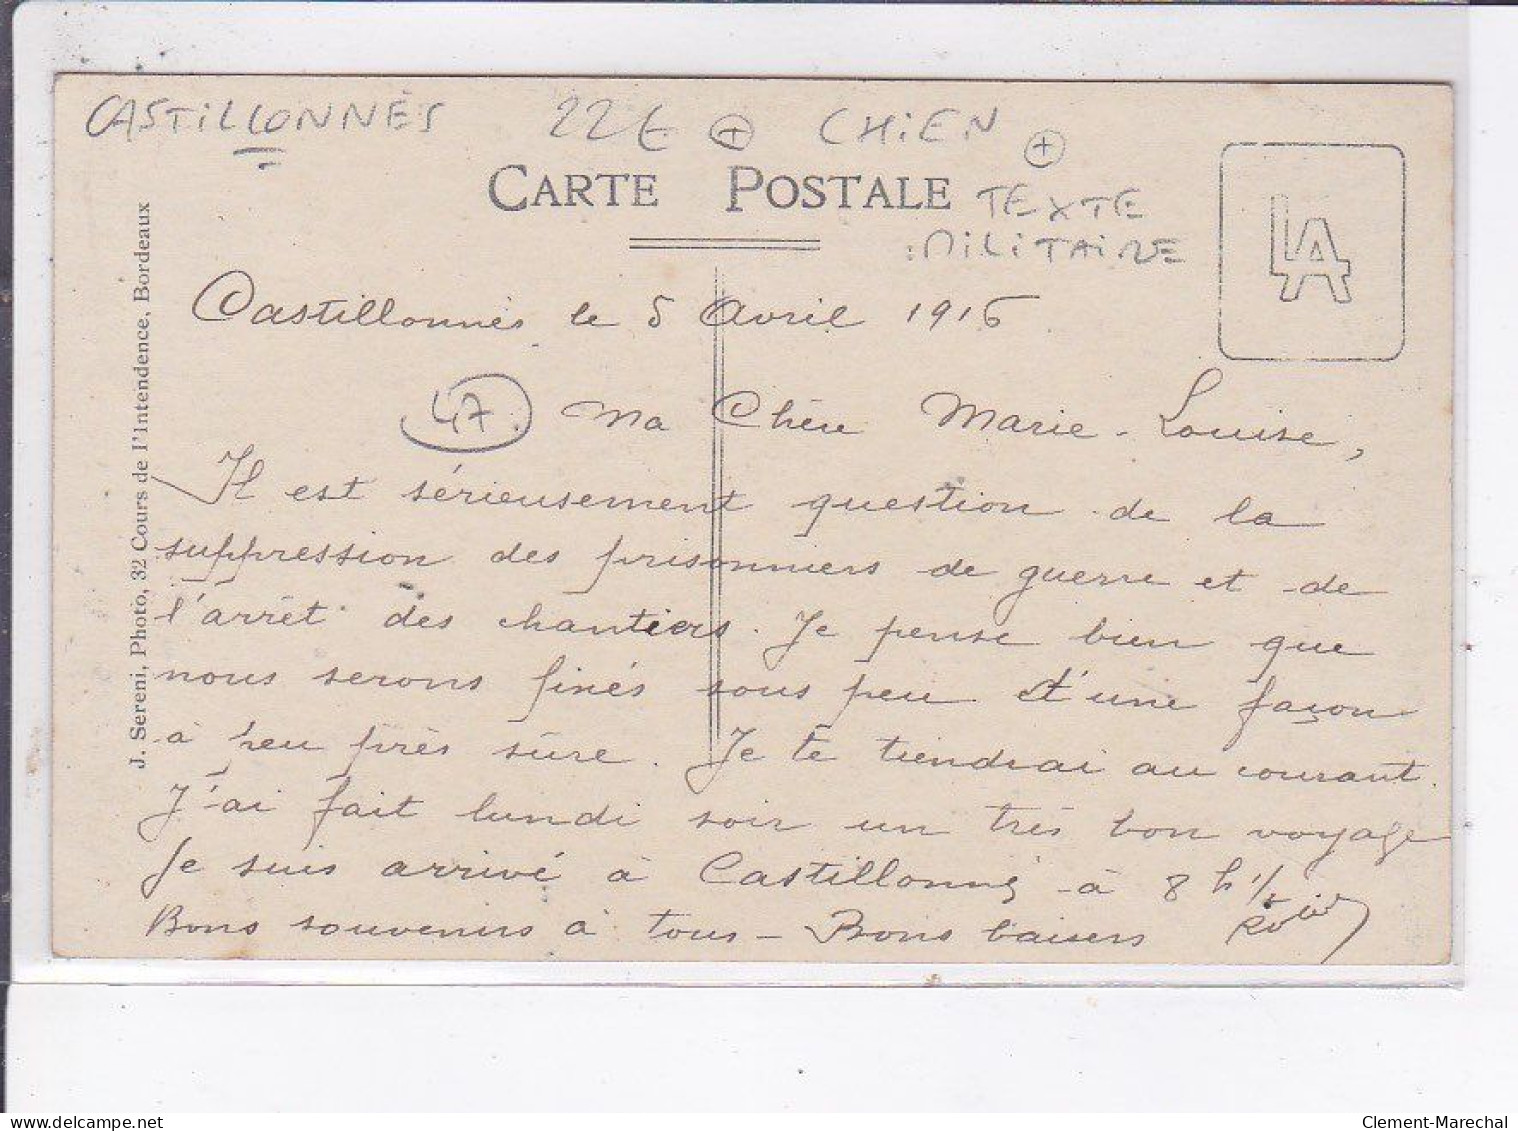 CASTILLONNÈS 22€ + CHIEN +
CARTE POSTALE
TEXTE
MILITAIRE
LA
J. Sereni, Photo, 32 Cours de l'Intendence, Bordeaux
Castillonnès le 5 Avril 1916
47
Ma Chère Marie-Louise,
Il est sérieusement question de la
suppression des prisonniers de guerre et de
l'arrêt des chantiers. Je pense bien que
nous serons fixés sous peu et d'une façon
à peu près sûre. Je te tiendrai au courant.
J'ai fait lundi soir un très bon voyage
Je suis arrivé à Castillonnès à 8 h 1/2
Bons souvenirs à tous - Bons baisers
Clement-Marechal